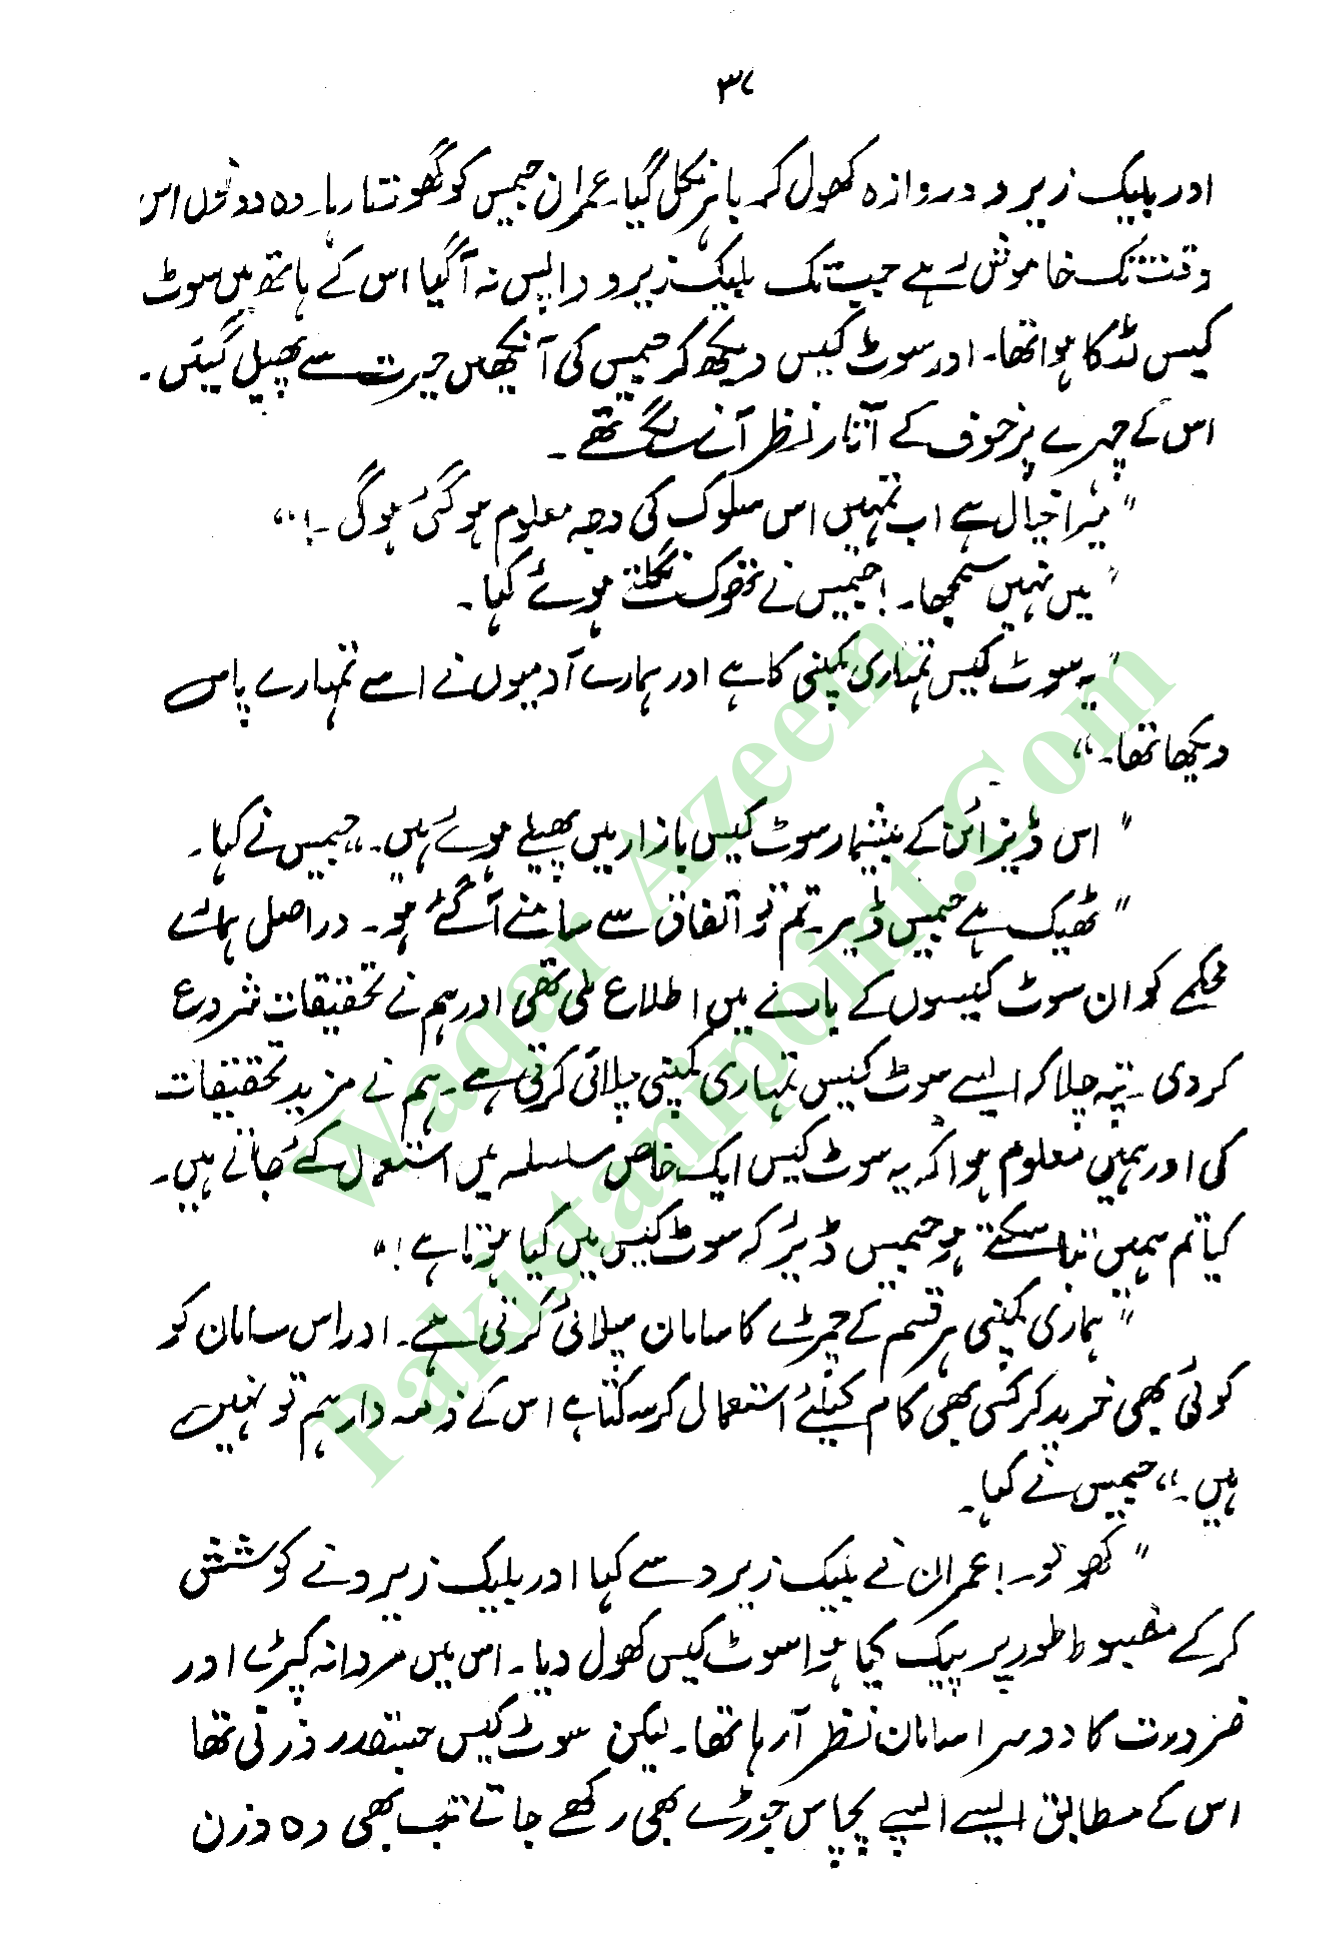 ۳۷
اور بلیک زیرو دروازہ کھول کر باہر نکل گیا۔ عمران جیمس کو گھونتا رہا۔ وہ دونوں اس
وقت تک خاموش رہے جب تک بلیک زیرو واپس نہ آگیا اس کے ہاتھ میں سوٹ
کیس لٹکا ہوا تھا۔ اور سوٹ کیس دیکھ کر جیمس کی آنکھیں حیرت سے پھیل گیئں۔
اس کے چہرے پر خوف کے آثار نظر آنے لگے تھے۔
"میرا خیال ہے اب تمہیں اس سلوک کی وجہ معلوم ہو گئی ہو گی۔!"
"میں نہیں سمجھا۔! جیمس نے تھوک نگلتے ہوئے کہا۔
"یہ سوٹ کیس تمہاری کمپنی کا ہے اور ہمارے آدمیوں نے اسے تمہارے پاس
دیکھا تھا۔"
"اس ڈیزائن کے بیشمار سوٹ کیس بازار میں پھیلے ہوئے ہیں۔" جیمس نے کہا۔
"ٹھیک ہے جیمس ڈیر۔ تم تو اتفاق سے سامنے آگئے ہو۔ دراصل ہمارے
محکمے کو ان سوٹ کیسوں کے بارے میں اطلاع ملی تھی اور ہم نے تحقیقات شروع
کر دی۔ پتہ چلا کہ ایسے سوٹ کیس تمہاری کمپنی سپلائی کرتی ہے۔ ہم نے مزید تحقیقات
کی اور ہمیں معلوم ہوا کہ یہ سوٹ کیس ایک خاص سلسلہ میں استعمال کئے جاتے ہیں۔
کیا تم ہمیں بتا سکتے ہو جیمس ڈیئر کہ سوٹ کیس میں کیا ہوتا ہے!"
"ہماری کمپنی ہر قسم کے چمڑے کا سامان سپلائی کرتی ہے۔ اور اس سامان کو
کوئی بھی خرید کر کسی بھی کام کیلئے استعمال کر سکتا ہے اس کے ذمہ دار ہم تو نہیں
ہیں۔" جیمس نے کہا۔
"کھولو۔! عمران نے بلیک زیرو سے کہا اور بلیک زیرو نے کوشش
کر کے مضبوط طور پر پیک کیا ہوا سوٹ کیس کھول دیا۔ اس میں مردانہ کپڑے اور
ضرورت کا دوسرا سامان نظر آ رہا تھا۔ لیکن سوٹ کیس جتقدر وزنی تھا
اس کے مطابق ایسے ایسے پچاس جوڑے بھی رکھے جاتے تب بھی وہ وزن
Waqar Azeem
Pakistanipoint.Com